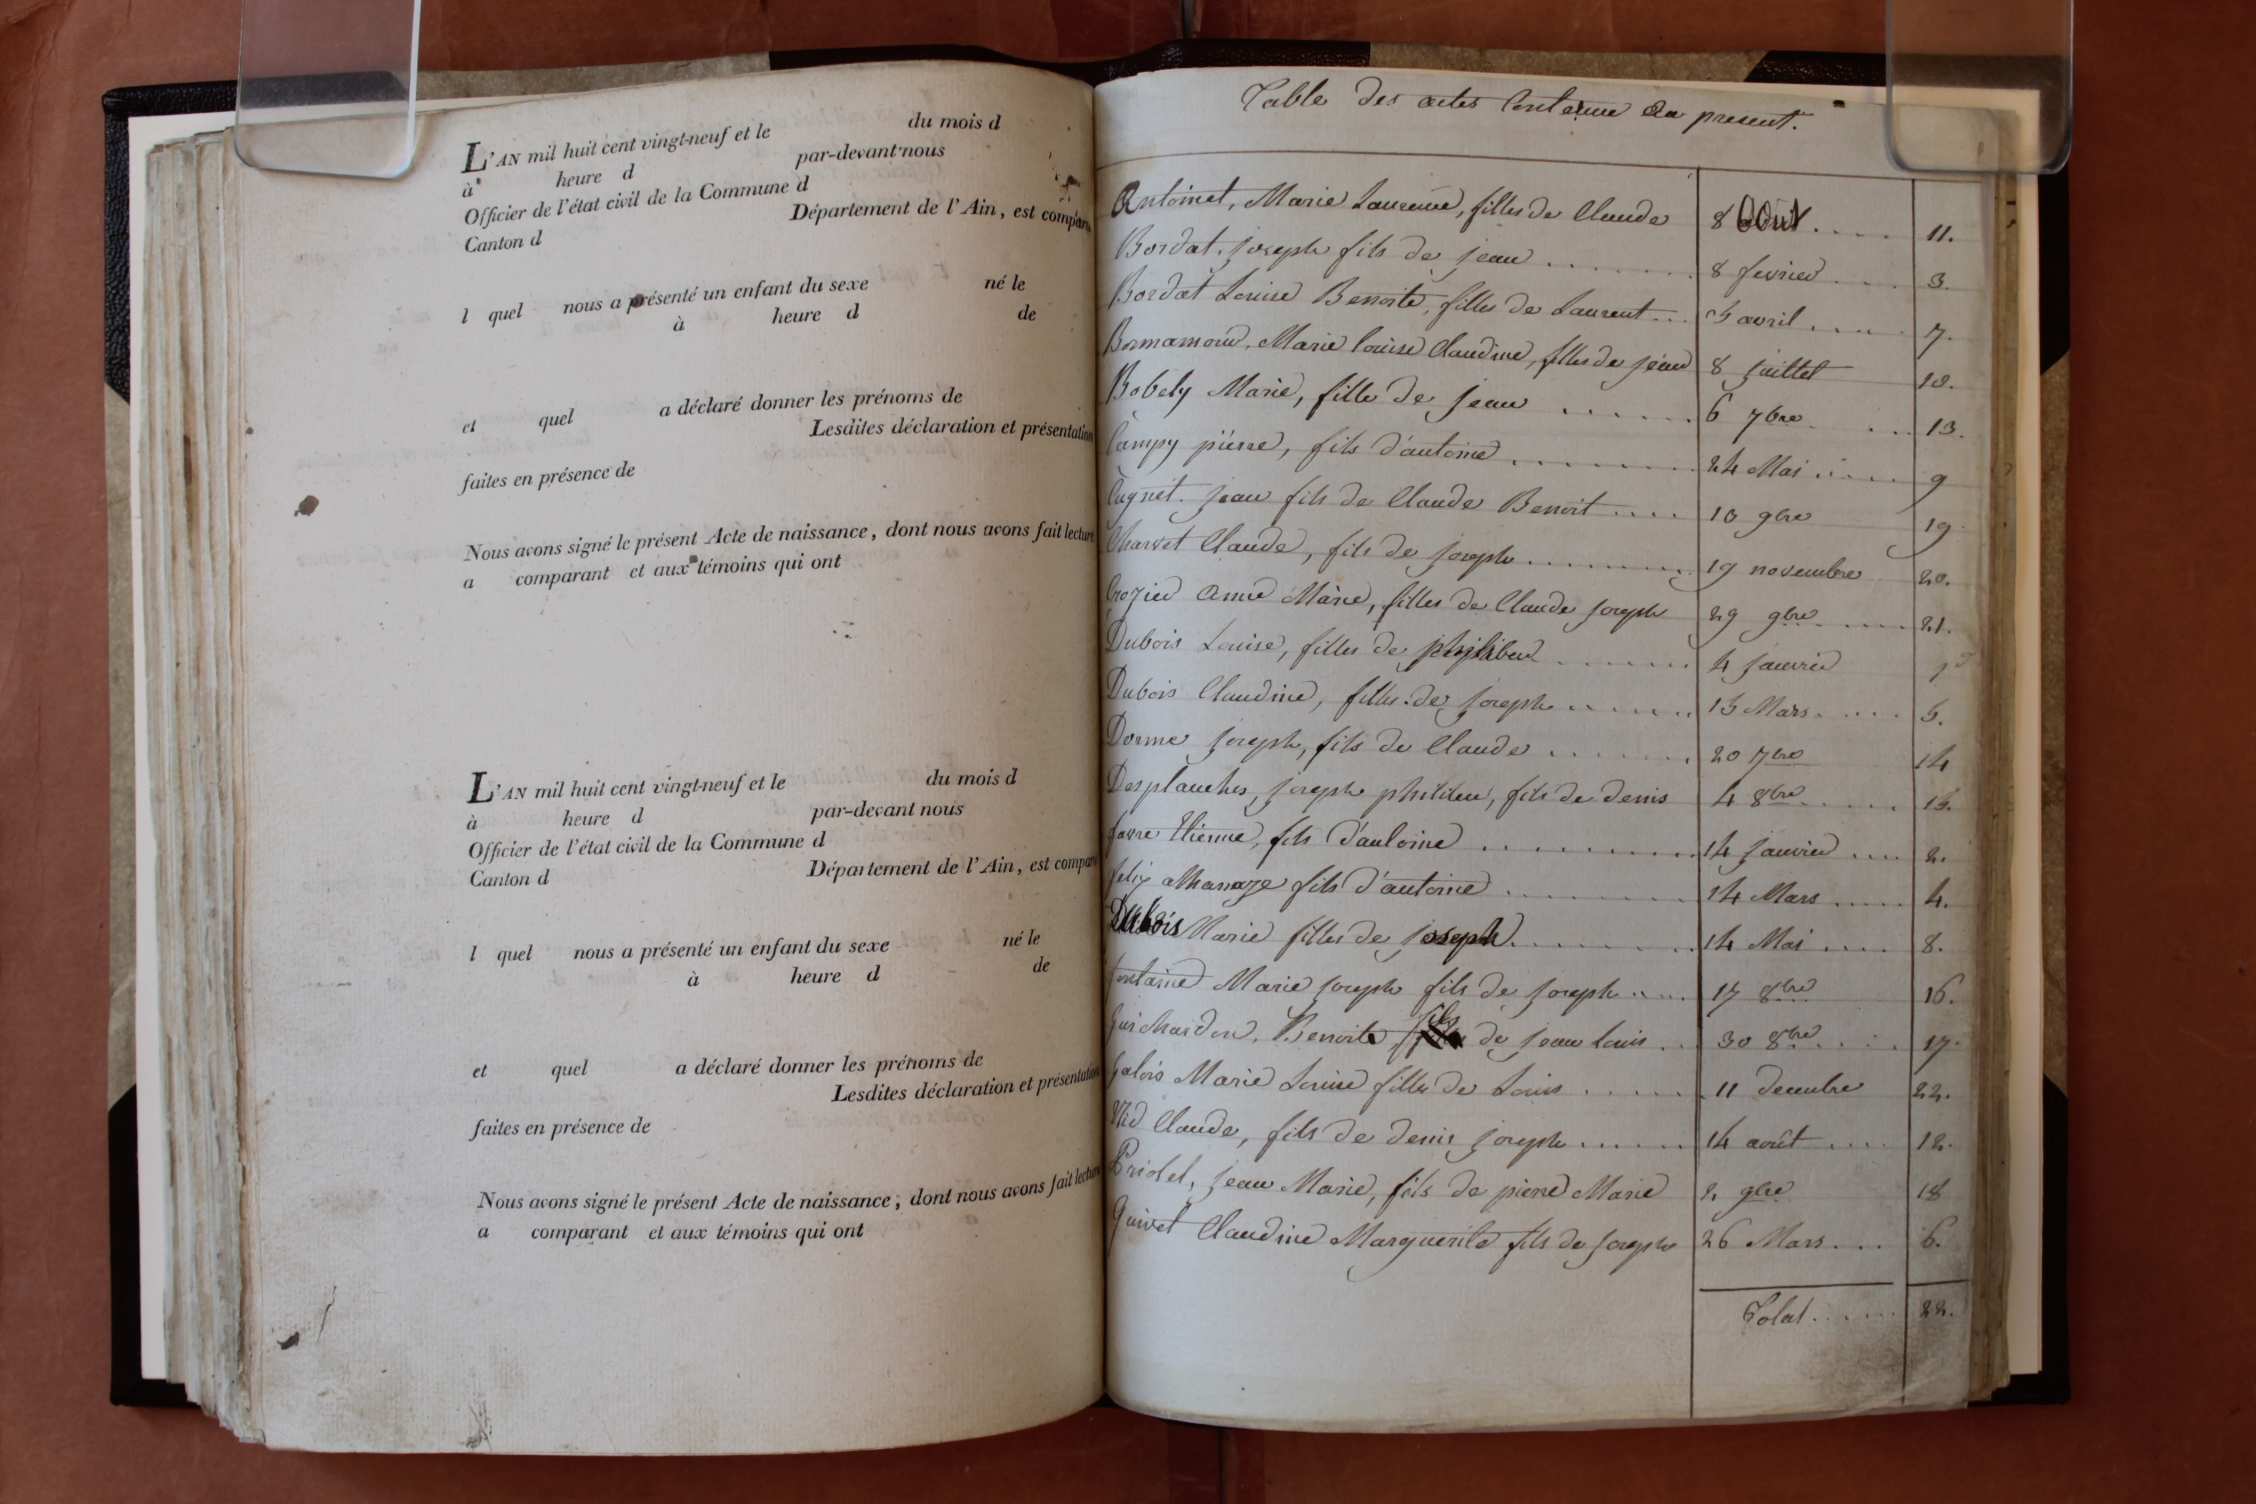 L'AN mil huit cent vingt-neuf et le du mois d
à heure d par-devant nous
Officier de l'état civil de la Commune d
Canton d Département de l'Ain, est comparu
l quel nous a présenté un enfant du sexe né le
à heure d de
et quel a déclaré donner les prénoms de
Lesdites déclaration et présentation
faites en présence de
Nous avons signé le présent Acte de naissance, dont nous avons fait lecture
a comparant et aux témoins qui ont
L'AN mil huit cent vingt-neuf et le du mois d
à heure d par-devant nous
Officier de l'état civil de la Commune d
Canton d Département de l'Ain, est comparu
l quel nous a présenté un enfant du sexe né le
à heure d de
et quel a déclaré donner les prénoms de
Lesdites déclaration et présentation
faites en présence de
Nous avons signé le présent Acte de naissance, dont nous avons fait lecture
a comparant et aux témoins qui ont
Table des actes Contenue au present.
Antoinet, Marie Laurence, filles de Claude 8 Août .... 11.
Bordat, joseph fils de jean ....... 8 fevrier .... 3.
Bordat Louise Benoite, filles de Laurent ... 5 avril ..... 7.
Marie louise Claudine, filles de jean 8 juillet 10.
Bobely Marie, fille de jean ...... 6 7bre .... 13.
Campy pierre, fils d'antoine ........ 24 Mai ..... 9
Cagnet. jean fils de Claude Benoit .... 10 9bre 19
Charvet Claude, fils de joseph ......... 19 novembre 20.
Crozier anne Marie, filles de Claude joseph 29 9bre ..... 21.
Dubois Louise, filles de philibert ...... 4 janvier 1
Dubois Claudine, filles de joseph ....... 15 Mars ..... 5.
Dorme joseph, fils de Claude ....... 20 7bre 14
Desplanches, joseph philibert, fils de denis 4 8bre ..... 15.
favre Etienne, fils d'antoine .......... 14 janvier .... 2.
felix athanaze fils d'antoine ......... 14 Mars ..... 4.
Dubois Marie filles de joseph ......... 14 Mai .... 8.
fontaine Marie joseph fils de joseph .... 17 8bre 16.
Guichardon, Benoite, fils de jean louis ... 30 8bre .... 17.
Galois Marie Louise filles de Louis ...... 11 decembre 22.
Claude, fils de denis joseph ...... 14 août .... 12.
Priolet, jean Marie, fils de pierre Marie 2 9bre 18
Quivet Claudine Marguerite fils de joseph 26 Mars ... 6.
Total ..... 22.